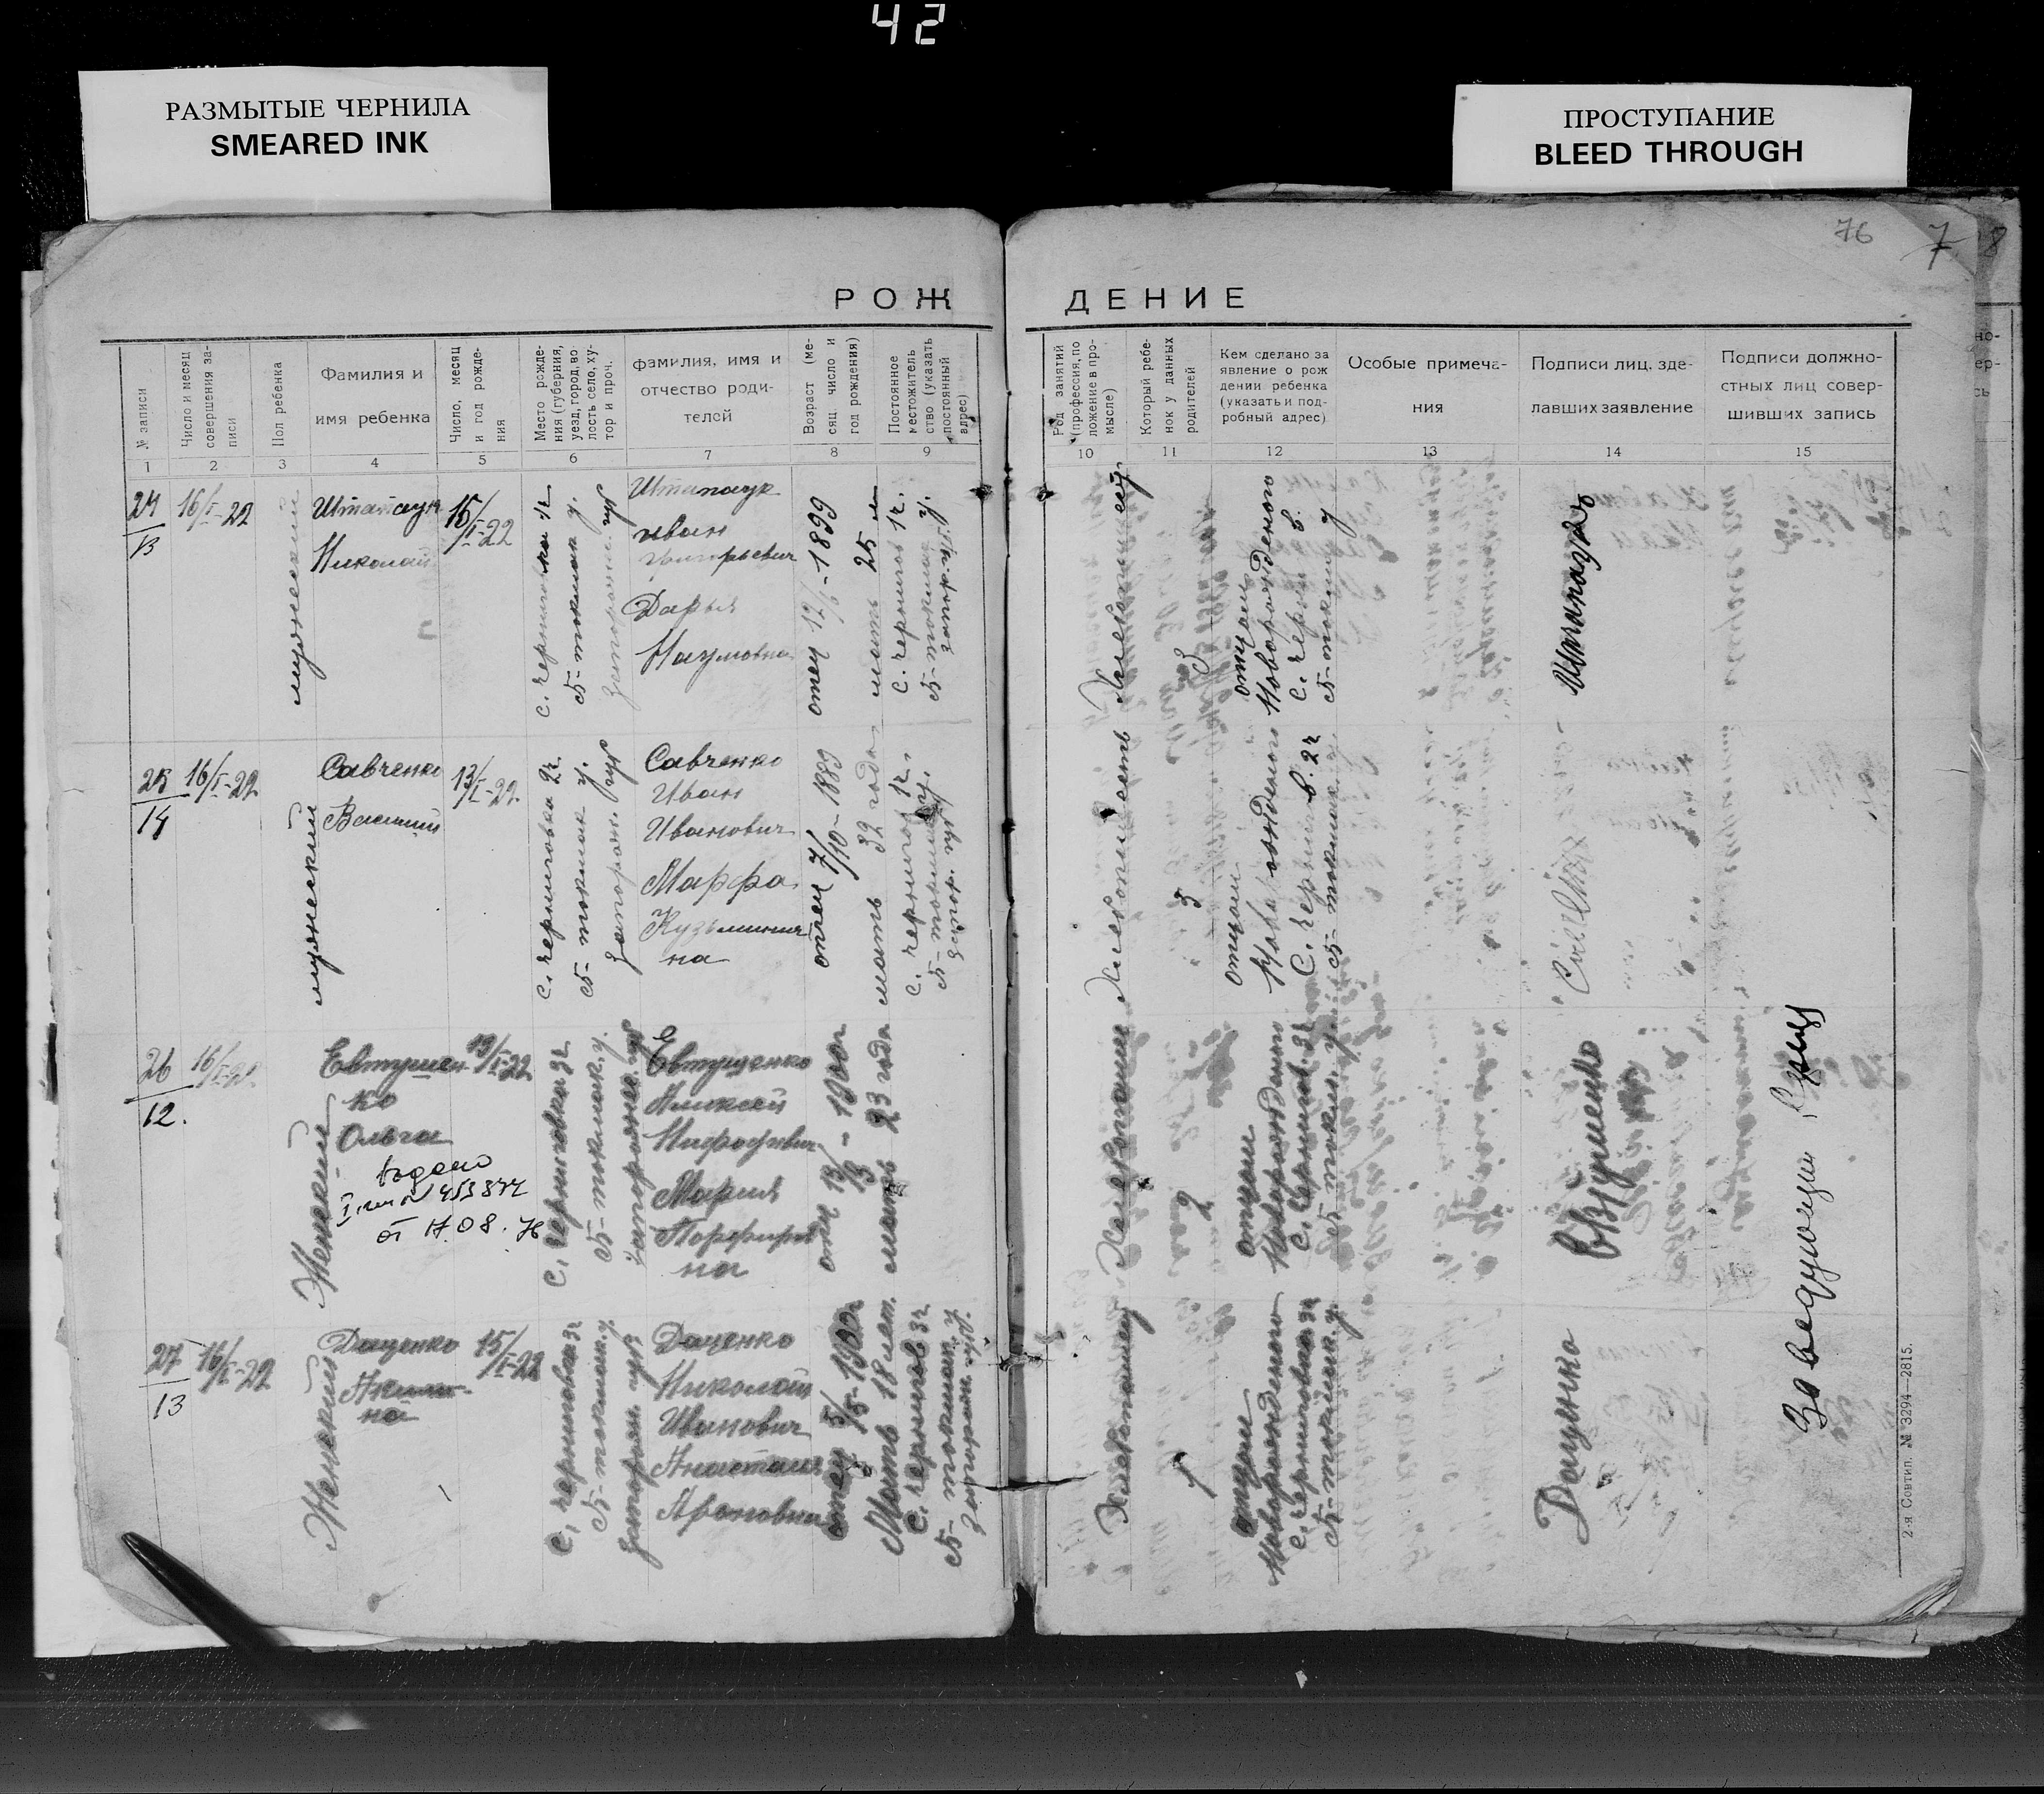 42
РАЗМЫТЫЕ ЧЕРНИЛА
SMEARED INK
ПРОСТУПАНИЕ
BLEED THROUGH
76
7
8
РОЖДЕНИЕ
№ записи
Число и месяц совершения записи
Пол ребенка
Фамилия и
имя ребенка
Число, месяц и год рождения
Место рождения (губерния, уезд, город, волость село, хутор и проч.
фамилия, имя и
отчество роди-
телей
Возраст (месяц, число и год рождения)
Постоянное местожительство (указать постоянный адрес)
Род занятий (профессия, положение в промысле)
Который ребенок у данных родителей
Кем сделано за
явление о рож
дении ребенка
(указать и под-
робный адрес)
Особые примеча-
ния
Подписи лиц, зде-
лавших заявление
Подписи должно-
стных лиц совер-
шивших запись
1 2 3 4 5 6 7 8 9 10 11 12 13 14 15
24
16/I-22
мужеский
Николай
15/I-22
Б-токмак у.
Иван
Григорьевич
Дарья
Наумовна
отец 12/ -1899
мать 25 л
с. Чернигов 1ч.
Б-токмак у.
3
отцом
Новорожденого
с. Черниг
Б-токмак у
25
14
16/I-22
мужеский
Савченко
Василий
13/I-22
с. Черниговка 2ч.
Б-токмак у.
Запорож. губ
Савченко
Иван
Иванович
Марфа
отец 7/10-1889
мать 32 года
с. Чернигов
Б-токмак у.
Запор. губ
Хлебопашест
3
отцом
Новорожденого
с. Черниг. в. 2ч
Б-токмак у
26
12.
16/I-22
Женский
Евтушен
ко
Ольга
от 17.08.76
13/I-22
с. Черниговка 3ч
Б-токмак. у.
Запорожск. губ
Евтушенко
Алексей
Мария
Порфиров
на
отец 13/ - 1900 г
мать 23 года
Хлебопашец
2
отцом
Новорожденого
с. Чернигов. 3ч
Б-токмак у
27
13
16/I-22
Женский
Даценко
Акили-
на
15/I-22
с. Черниговка 3ч
Б-токмак. у
Запорож. губ
Даценко
Николай
Иванович
Анастасия
Ароновна
отец 5/5-1900
Мать 18 лет.
с. Чернигов 3ч
Б-токмак у
Запорож.
Хлебопашец
1
отцом
Новорожденого
с. Черниговка 3ч
Б-токмак у
Даценко
Заведующий
2-я Совтип. № 3294—2815.